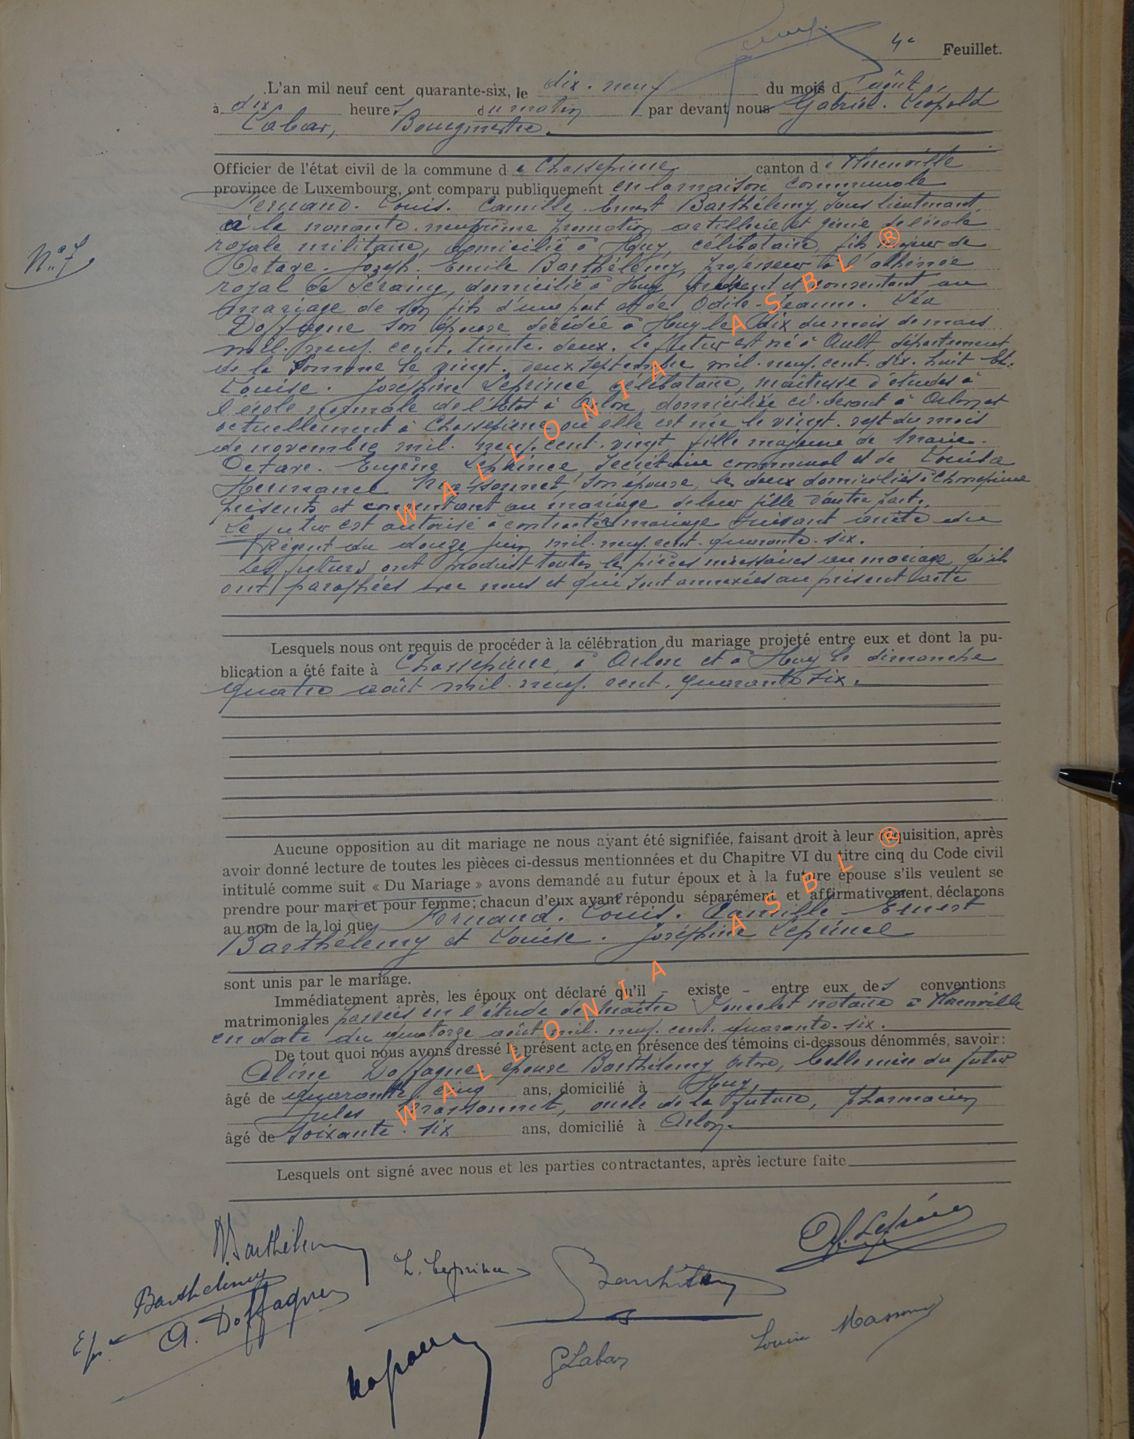 4e Feuillet.
L'an mil neuf cent quarante-six, le dix-neuf du mois d'août
à dix heures du matin par devant nous Gabriel-Léopold
Labar, Bourgmestre.
Officier de l'état civil de la commune de Chassepierre canton de Florenville
province de Luxembourg, ont comparu publiquement en la maison communale
Fernand-Louis-Camille-Ernest Barthélemy, sous lieutenant
à la nonante-neuvième promotion artillerie et génie de l'école
N° 7
royale militaire, domicilié à Huy, célibataire, fils majeur de
Octave-Joseph-Emile Barthélemy, professeur à l'athénée
royal de Seraing, domicilié à Huy, présent et consentant au
mariage de son fils d'une part et de Odile-Jeanne-Léa
Doffagne son épouse décédée à Huy le dix du mois de mars
mil-neuf-cent-trente-deux. Le futur est né à Ault département
de la Somme le vingt-deux septembre mil-neuf-cent-dix-huit Et.
Louise-Joséphine Leprince, célibataire, maîtresse d'études à
l'école normale de l'Etat à Arlon, domiciliée ci-devant à Arlon et
actuellement à Chassepierre où elle est née le vingt-sept du mois
de novembre mil-neuf-cent-vingt fille majeure de Marie-
Octave-Eugène Leprince, secrétaire communal et de Louisa
Massonnet, son épouse, les deux domiciliés à Chassepierre
présents et consentant au mariage de leur fille d'autre part.
Le futur est autorisé à contracter mariage suivant arrêté du
Régent du douze juin mil-neuf-cent-quarante-six.
Les futurs ont produit toutes les pièces nécessaires au mariage, qu'ils
ont paraphées avec nous et qui sont annexées au présent acte
Lesquels nous ont requis de procéder à la célébration du mariage projeté entre eux et dont la pu-
blication a été faite à Chassepierre, à Arlon et à Huy le dimanche
quatre août mil-neuf-cent-quarante-six.
Aucune opposition au dit mariage ne nous ayant été signifiée, faisant droit à leur réquisition, après
avoir donné lecture de toutes les pièces ci-dessus mentionnées et du Chapitre VI du titre cinq du Code civil
intitulé comme suit « Du Mariage » avons demandé au futur époux et à la future épouse s'ils veulent se
prendre pour mari et pour femme; chacun d'eux ayant répondu séparément et affirmativement, déclarons
au nom de la loi que Fernand-Louis-Camille-Ernest
Barthélemy et Louise-Joséphine Leprince
sont unis par le mariage.
Immédiatement après, les époux ont déclaré qu'il - existe - entre eux des conventions
matrimoniales passées en l'étude de maître notaire à Florenville
en date du quatorze août mil-neuf-cent-quarante-six.
De tout quoi nous avons dressé le présent acte en présence des témoins ci-dessous dénommés, savoir:
Aline Doffagne, épouse Barthélemy Octave, belle mère du futur
âgé de quarante-cinq ans, domicilié à Huy,
Jules Massonnet, oncle de la future, pharmacien
âgé de soixante-six ans, domicilié à Arlon.
Lesquels ont signé avec nous et les parties contractantes, après lecture faite
Barthélemy
L. Leprince
Barthélemy
Leprince
Barthélemy
A. Doffagne
G Labar
Massonnet
WALLONIA ASBL ®
WALLONIA ASBL ®